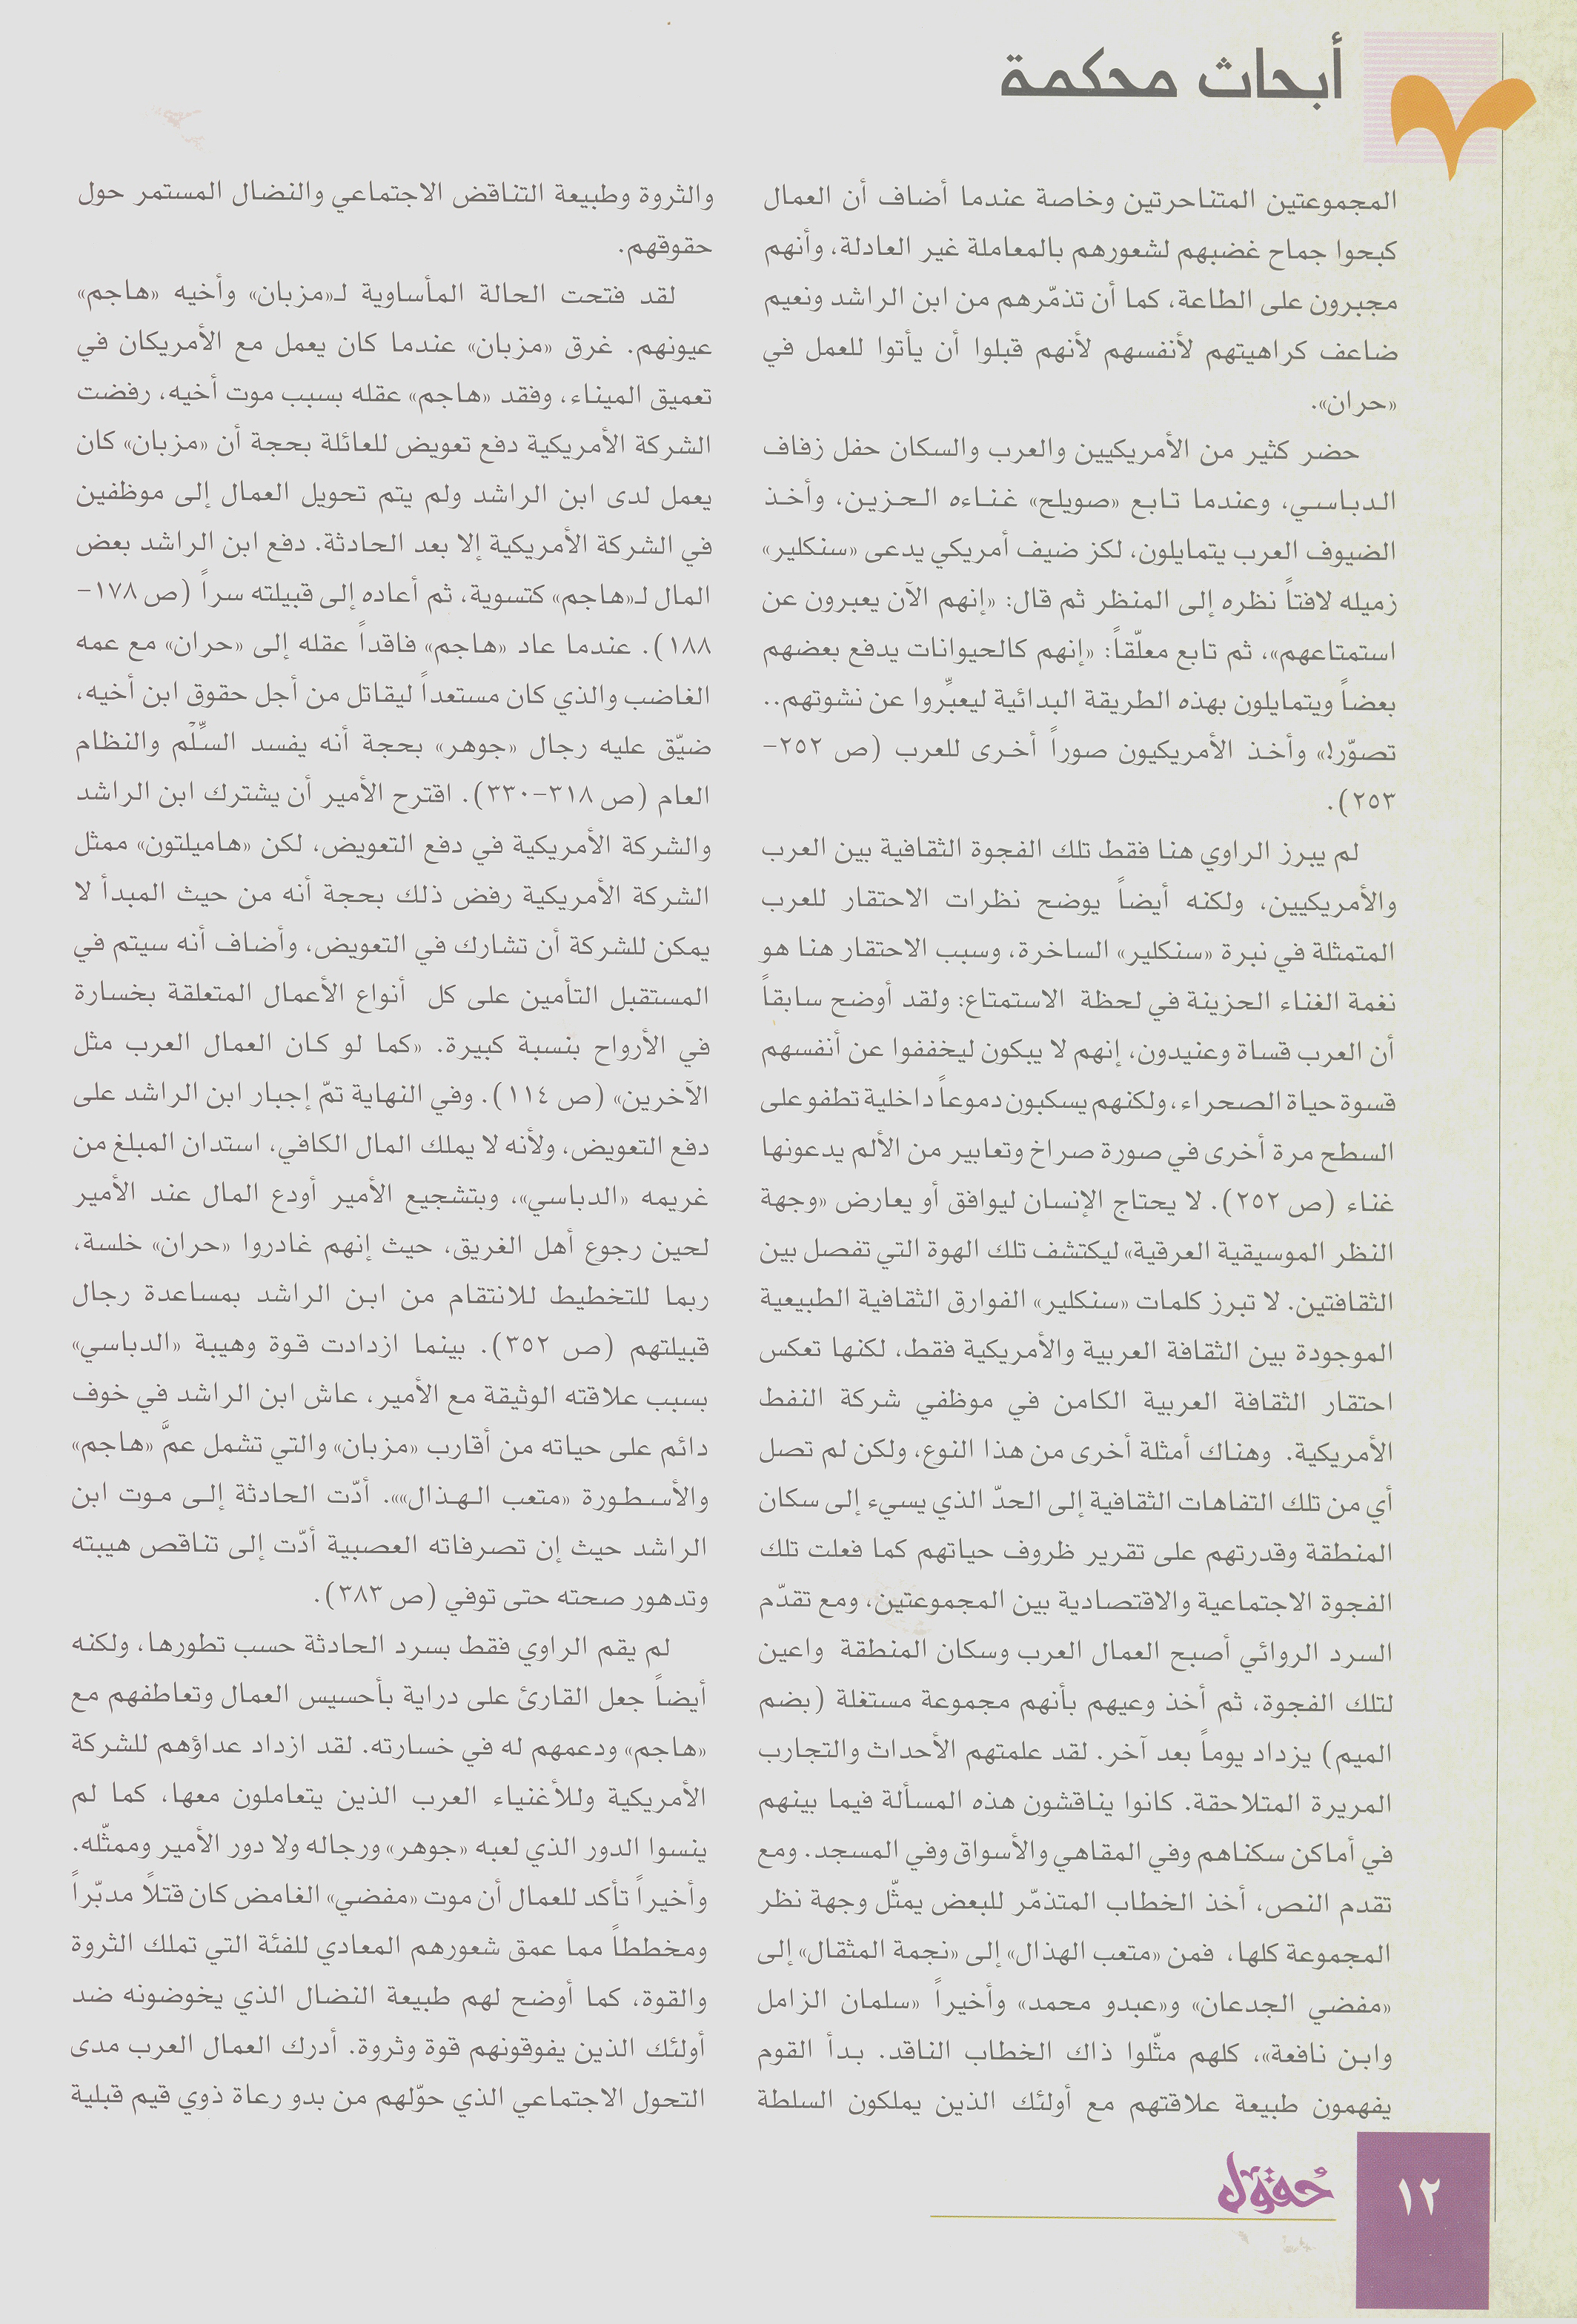 أبحاث محكمة
المجموعتين المتناحرتين وخاصة عندما أضاف أن العمال
كبحوا جماح غضبهم لشعورهم بالمعاملة غير العادلة، وأنهم
مجبرون على الطاعة، كما أن تذمّرهم من ابن الراشد ونعيم
ضاعف كراهيتهم لأنفسهم لأنهم قبلوا أن يأتوا للعمل في
«حران».
حضر كثير من الأمريكيين والعرب والسكان حفل زفاف
الدباسي، وعندما تابع «صويلح» غناءه الحزين، وأخذ
الضيوف العرب يتمايلون، لكز ضيف أمريكي يدعى «سنكلير»
زميله لافتاً نظره إلى المنظر ثم قال: «إنهم الآن يعبرون عن
استمتاعهم»، ثم تابع معلّقاً: «إنهم كالحيوانات يدفع بعضهم
بعضاً ويتمايلون بهذه الطريقة البدائية ليعبِّروا عن نشوتهم..
تصوّر!» وأخذ الأمريكيون صوراً أخرى للعرب (ص ٢٥٢-
٢٥٣).
لم يبرز الراوي هنا فقط تلك الفجوة الثقافية بين العرب
والأمريكيين، ولكنه أيضاً يوضح نظرات الاحتقار للعرب
المتمثلة في نبرة «سنكلير» الساخرة، وسبب الاحتقار هنا هو
نغمة الغناء الحزينة في لحظة الاستمتاع: ولقد أوضح سابقاً
أن العرب قساة وعنيدون، إنهم لا يبكون ليخففوا عن أنفسهم
قسوة حياة الصحراء، ولكنهم يسكبون دموعاً داخلية تطفو على
السطح مرة أخرى في صورة صراخ وتعابير من الألم يدعونها
غناء (ص ٢٥٢). لا يحتاج الإنسان ليوافق أو يعارض «وجهة
النظر الموسيقية العرقية» ليكتشف تلك الهوة التي تفصل بين
الثقافتين. لا تبرز كلمات «سنكلير» الفوارق الثقافية الطبيعية
الموجودة بين الثقافة العربية والأمريكية فقط، لكنها تعكس
احتقار الثقافة العربية الكامن في موظفي شركة النفط
الأمريكية. وهناك أمثلة أخرى من هذا النوع، ولكن لم تصل
أي من تلك التفاهات الثقافية إلى الحدّ الذي يسيء إلى سكان
المنطقة وقدرتهم على تقرير ظروف حياتهم كما فعلت تلك
الفجوة الاجتماعية والاقتصادية بين المجموعتين، ومع تقدّم
السرد الروائي أصبح العمال العرب وسكان المنطقة واعين
لتلك الفجوة، ثم أخذ وعيهم بأنهم مجموعة مستغلة (بضم
الميم) يزداد يوماً بعد آخر. لقد علمتهم الأحداث والتجارب
المريرة المتلاحقة. كانوا يناقشون هذه المسألة فيما بينهم
في أماكن سكناهم وفي المقاهي والأسواق وفي المسجد. ومع
تقدم النص، أخذ الخطاب المتذمّر للبعض يمثّل وجهة نظر
المجموعة كلها، فمن «متعب الهذال» إلى «نجمة المثقال» إلى
«مفضي الجدعان» و«عبدو محمد» وأخيراً «سلمان الزامل
وابن نافعة»، كلهم مثّلوا ذاك الخطاب الناقد. بدأ القوم
يفهمون طبيعة علاقتهم مع أولئك الذين يملكون السلطة
والثروة وطبيعة التناقض الاجتماعي والنضال المستمر حول
حقوقهم.
لقد فتحت الحالة المأساوية لـ«مزبان» وأخيه «هاجم»
عيونهم. غرق «مزبان» عندما كان يعمل مع الأمريكان في
تعميق الميناء، وفقد «هاجم» عقله بسبب موت أخيه، رفضت
الشركة الأمريكية دفع تعويض للعائلة بحجة أن «مزبان» كان
يعمل لدى ابن الراشد ولم يتم تحويل العمال إلى موظفين
في الشركة الأمريكية إلا بعد الحادثة. دفع ابن الراشد بعض
المال لـ«هاجم» كتسوية، ثم أعاده إلى قبيلته سراً (ص ١٧٨-
١٨٨). عندما عاد «هاجم» فاقداً عقله إلى «حران» مع عمه
الغاضب والذي كان مستعداً ليقاتل من أجل حقوق ابن أخيه،
ضيّق عليه رجال «جوهر» بحجة أنه يفسد السِّلْم والنظام
العام (ص ٣١٨-٣٣٠). اقترح الأمير أن يشترك ابن الراشد
والشركة الأمريكية في دفع التعويض، لكن «هاميلتون» ممثل
الشركة الأمريكية رفض ذلك بحجة أنه من حيث المبدأ لا
يمكن للشركة أن تشارك في التعويض، وأضاف أنه سيتم في
المستقبل التأمين على كل أنواع الأعمال المتعلقة بخسارة
في الأرواح بنسبة كبيرة. «كما لو كان العمال العرب مثل
الآخرين» (ص ١١٤). وفي النهاية تمّ إجبار ابن الراشد على
دفع التعويض، ولأنه لا يملك المال الكافي، استدان المبلغ من
غريمه «الدباسي»، وبتشجيع الأمير أودع المال عند الأمير
لحين رجوع أهل الغريق، حيث إنهم غادروا «حران» خلسة،
ربما للتخطيط للانتقام من ابن الراشد بمساعدة رجال
قبيلتهم (ص ٣٥٢). بينما ازدادت قوة وهيبة «الدباسي»
بسبب علاقته الوثيقة مع الأمير، عاش ابن الراشد في خوف
دائم على حياته من أقارب «مزبان» والتي تشمل عمَّ «هاجم»
والأسطورة «متعب الهذال»». أدّت الحادثة إلى موت ابن
الراشد حيث إن تصرفاته العصبية أدّت إلى تناقص هيبته
وتدهور صحته حتى توفي (ص ٣٨٣).
لم يقم الراوي فقط بسرد الحادثة حسب تطورها، ولكنه
أيضاً جعل القارئ على دراية بأحسيس العمال وتعاطفهم مع
«هاجم» ودعمهم له في خسارته. لقد ازداد عداؤهم للشركة
الأمريكية وللأغنياء العرب الذين يتعاملون معها، كما لم
ينسوا الدور الذي لعبه «جوهر» ورجاله ولا دور الأمير وممثّله.
وأخيراً تأكد للعمال أن موت «مفضي» الغامض كان قتلاً مدبّراً
ومخططاً مما عمق شعورهم المعادي للفئة التي تملك الثروة
والقوة، كما أوضح لهم طبيعة النضال الذي يخوضونه ضد
أولئك الذين يفوقونهم قوة وثروة. أدرك العمال العرب مدى
التحول الاجتماعي الذي حوّلهم من بدو رعاة ذوي قيم قبلية
حُقول
١٢